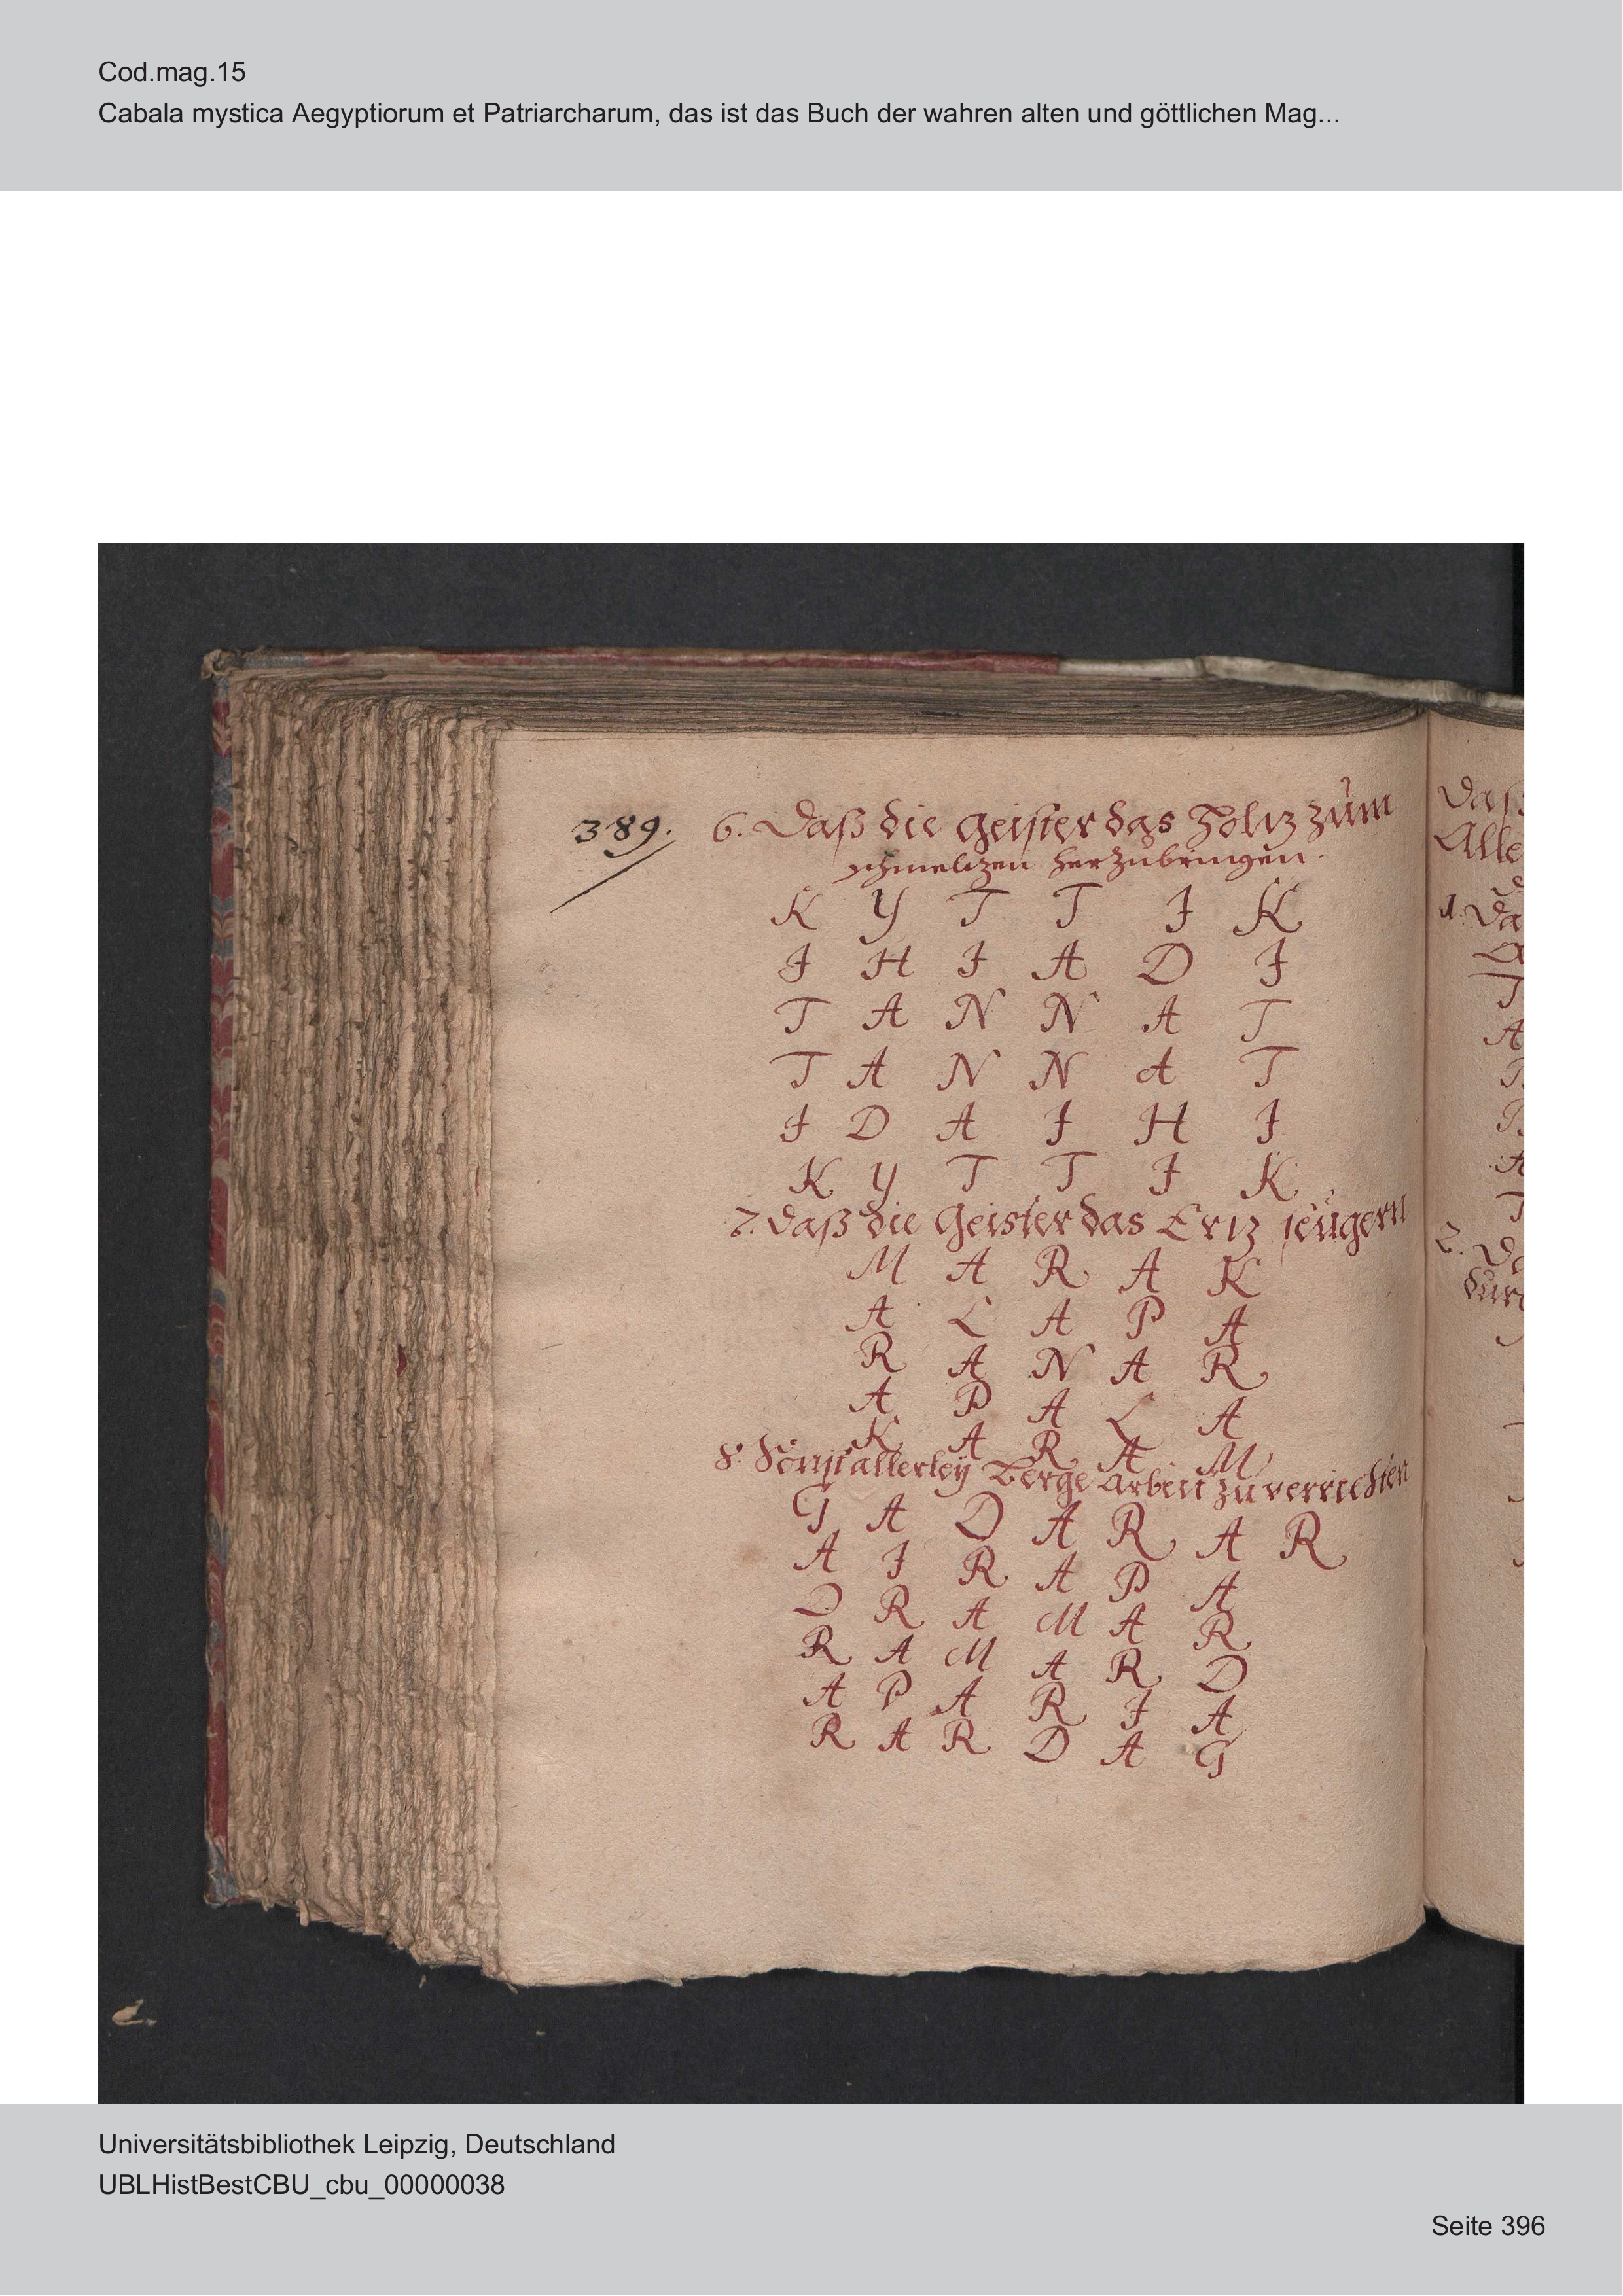 Cod.mag.15
Cabala mystica Aegyptiorum et Patriarcharum, das ist das Buch der wahren alten und göttlichen Mag...
389.
6. Daß die Geister das Holtz zum
schmeltzen herzubringen.
K Y T T I K
I H I A D I
T A N N A T
T A N N A T
I D A I H I
K Y T T I K
7. Daß die Geister das Ertz seügern
M A R A K
A L A P A
R A N A R
A P A L A
K A R A M
8. Sonst allerleÿ Berge Arbeit zu verrichten
G A D A R A R
A I R A P A
D R A M A R
R A M A R D
A P A R I A
R A R D A G
Daß
Alle
1. Da
T
A
A
T
2. De
Universitätsbibliothek Leipzig, Deutschland
UBLHistBestCBU_cbu_00000038
Seite 396